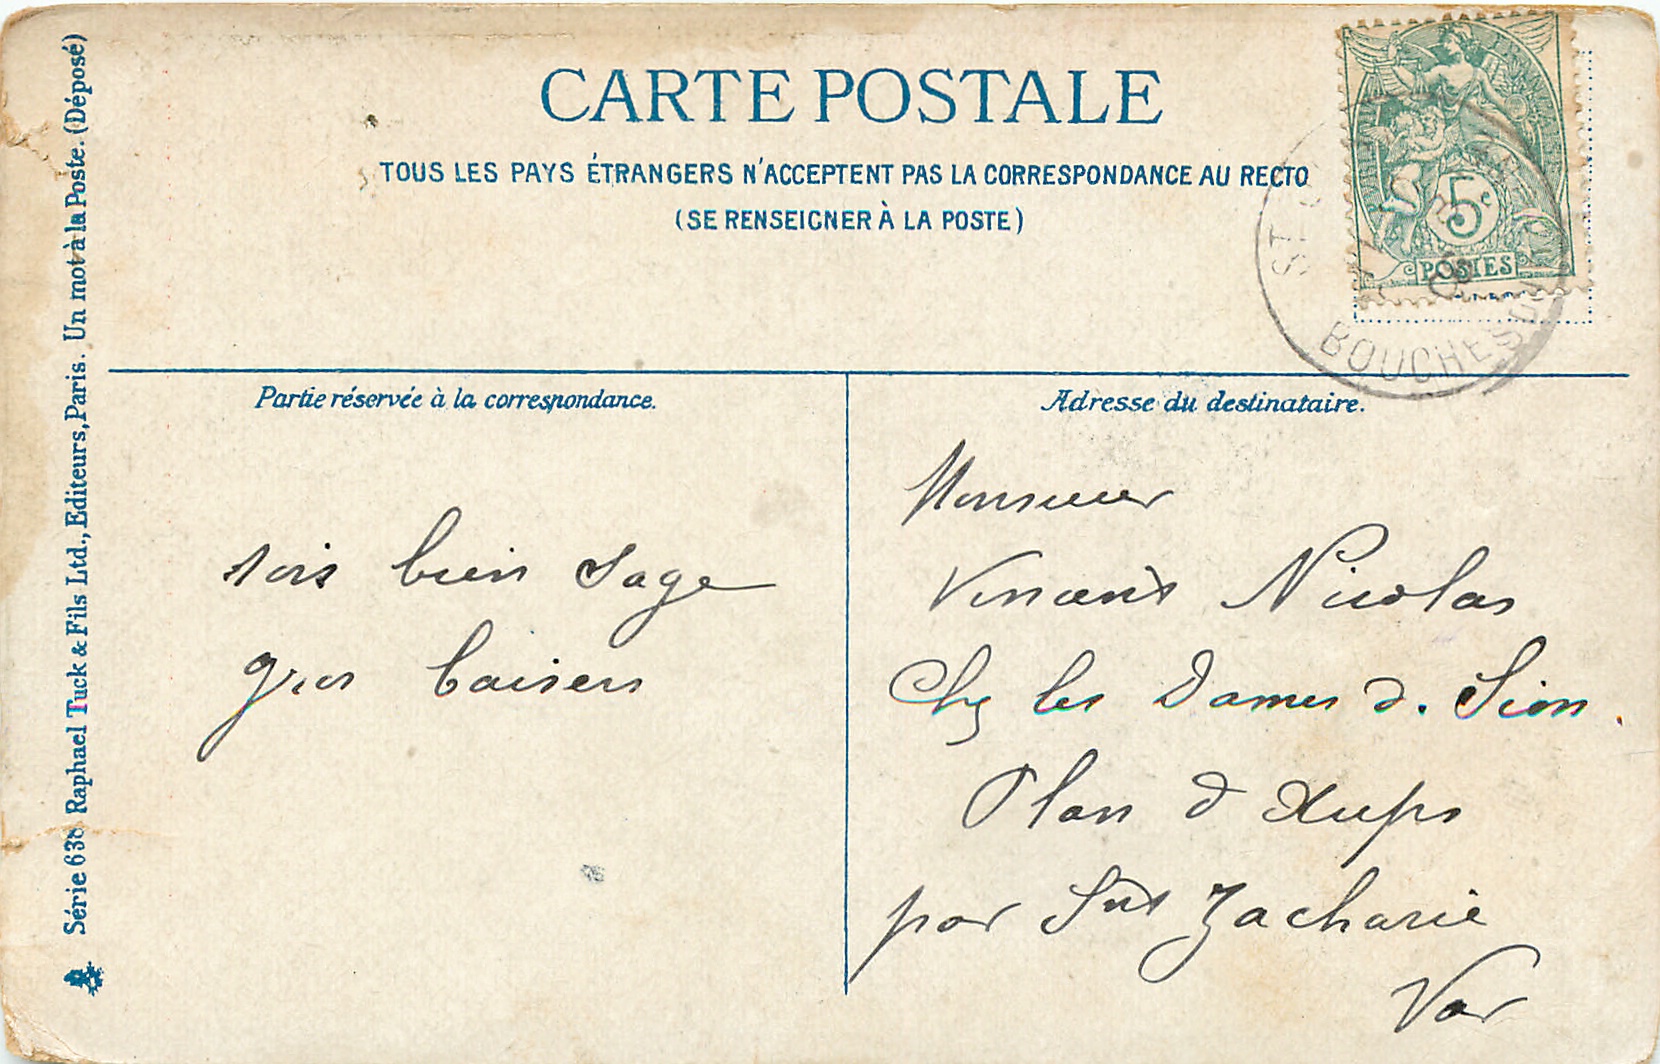 CARTE POSTALE
TOUS LES PAYS ÉTRANGERS N'ACCEPTENT PAS LA CORRESPONDANCE AU RECTO
(SE RENSEIGNER À LA POSTE)
5c
POSTES
ST
BOUCHES DU
Série 638 Raphael Tuck & Fils Ltd., Editeurs, Paris. Un mot à la Poste. (Déposé)
Partie réservée à la correspondance.
sois bien sage
gros baisers
Adresse du destinataire.
Monsieur
Vincent Nicolas
Chez les Dames d. Sion.
Plan d Aups
par Zacharie
Var